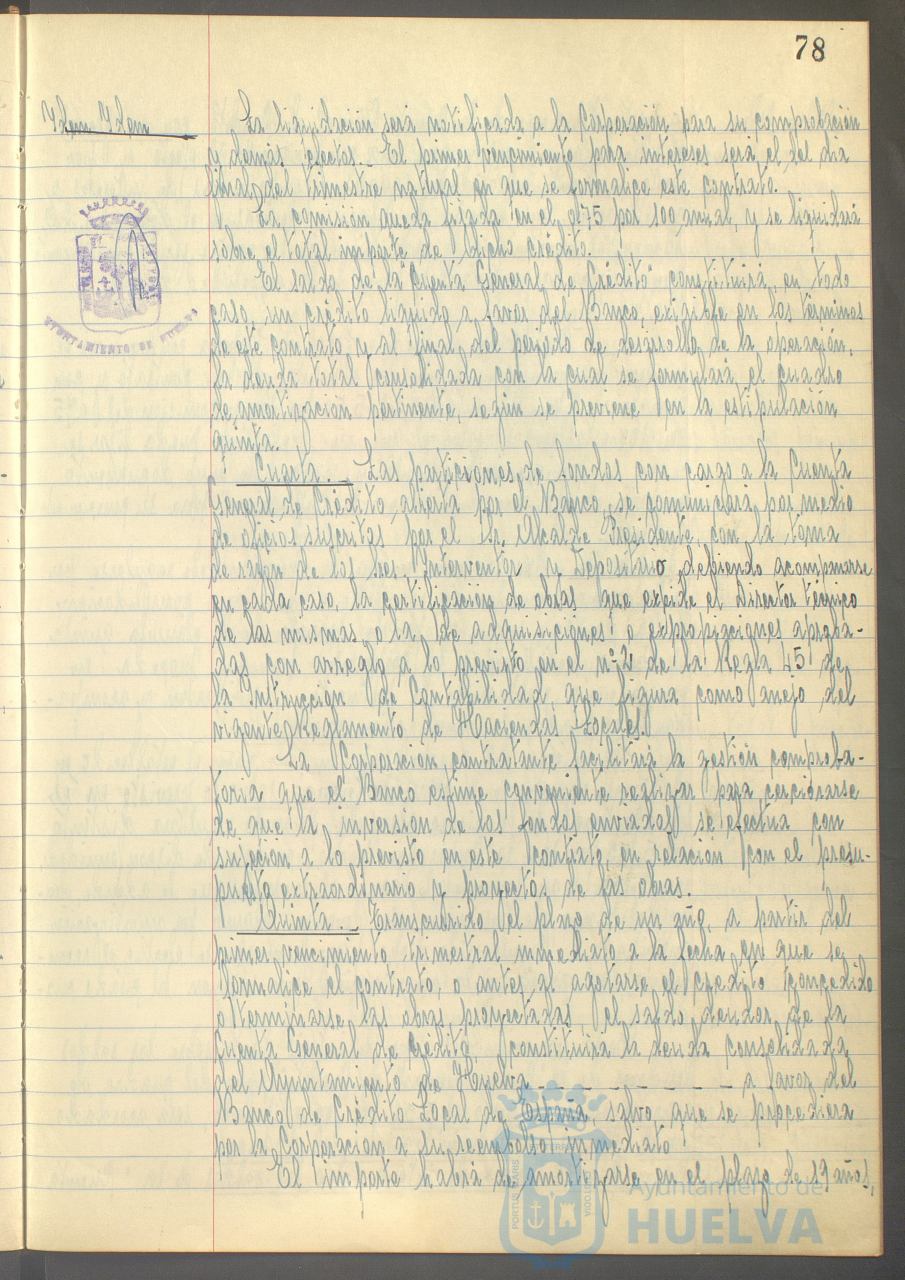 78
Idem Idem
La liquidación será notificada a la Corporación para su comprobación
y demás efectos. El primer vencimiento para intereses será el del día
final del trimestre natural en que se formalice este contrato.
La comisión queda fijada en el 0'75 por 100 anual y se liquidará
sobre el total importe de dicho crédito.
El saldo de la "Cuenta General de Crédito" constituirá, en todo
caso, un crédito líquido a favor del Banco, exigible en los términos
de este contrato y al final del período de desarrollo de la operación,
la deuda total consolidada con la cual se formulará el cuadro
de amortización pertinente, según se previene en la estipulación
quinta.
Cuarta._ Las peticiones de fondos con cargo a la Cuenta
General de Crédito abierta por el Banco, se comunicará por medio
de oficios suscritos por el Sr. Alcalde Presidente, con la toma
de razon de los Sres. Interventor y Depositario debiendo acompañarse
en cada caso, la certificación de obras que expide el Director técnico
de las mismas o la de adquisiciones o expropiaciones aproba-
das con arreglo a lo previsto en el nº 2 de la Regla 45 de
la Instrucción de Contabilidad, que figura como anejo del
vigente Reglamento de Haciendas Locales.
La Corporación contratante facilitará la gestión comproba-
toria que el Banco estime conveniente realizar para cerciorarse
de que la inversión de los fondos enviados se efectúa con
sujeción a lo previsto en este contrato, en relación con el presu-
puesto extraordinario y proyectos de las obras.
Quinta._ Transcurrido el plazo de un año, a partir del
primer vencimiento trimestral inmediato a la fecha en que se
formalice el contrato, o antes al agotarse el crédito concedido
o terminarse las obras proyectadas el saldo deudor de la
Cuenta General de Crédito constituirá la deuda consolidada
del Ayuntamiento de Huelva _ _ _ _ _ _ _ a favor del
Banco de Crédito Local de España salvo que se procediera
por la Corporación a su reembolso inmediato
El importe habrá de amortizarse en el plazo de 19 años,
AYUNTAMIENTO DE HUELVA
Ayuntamiento de
HUELVA